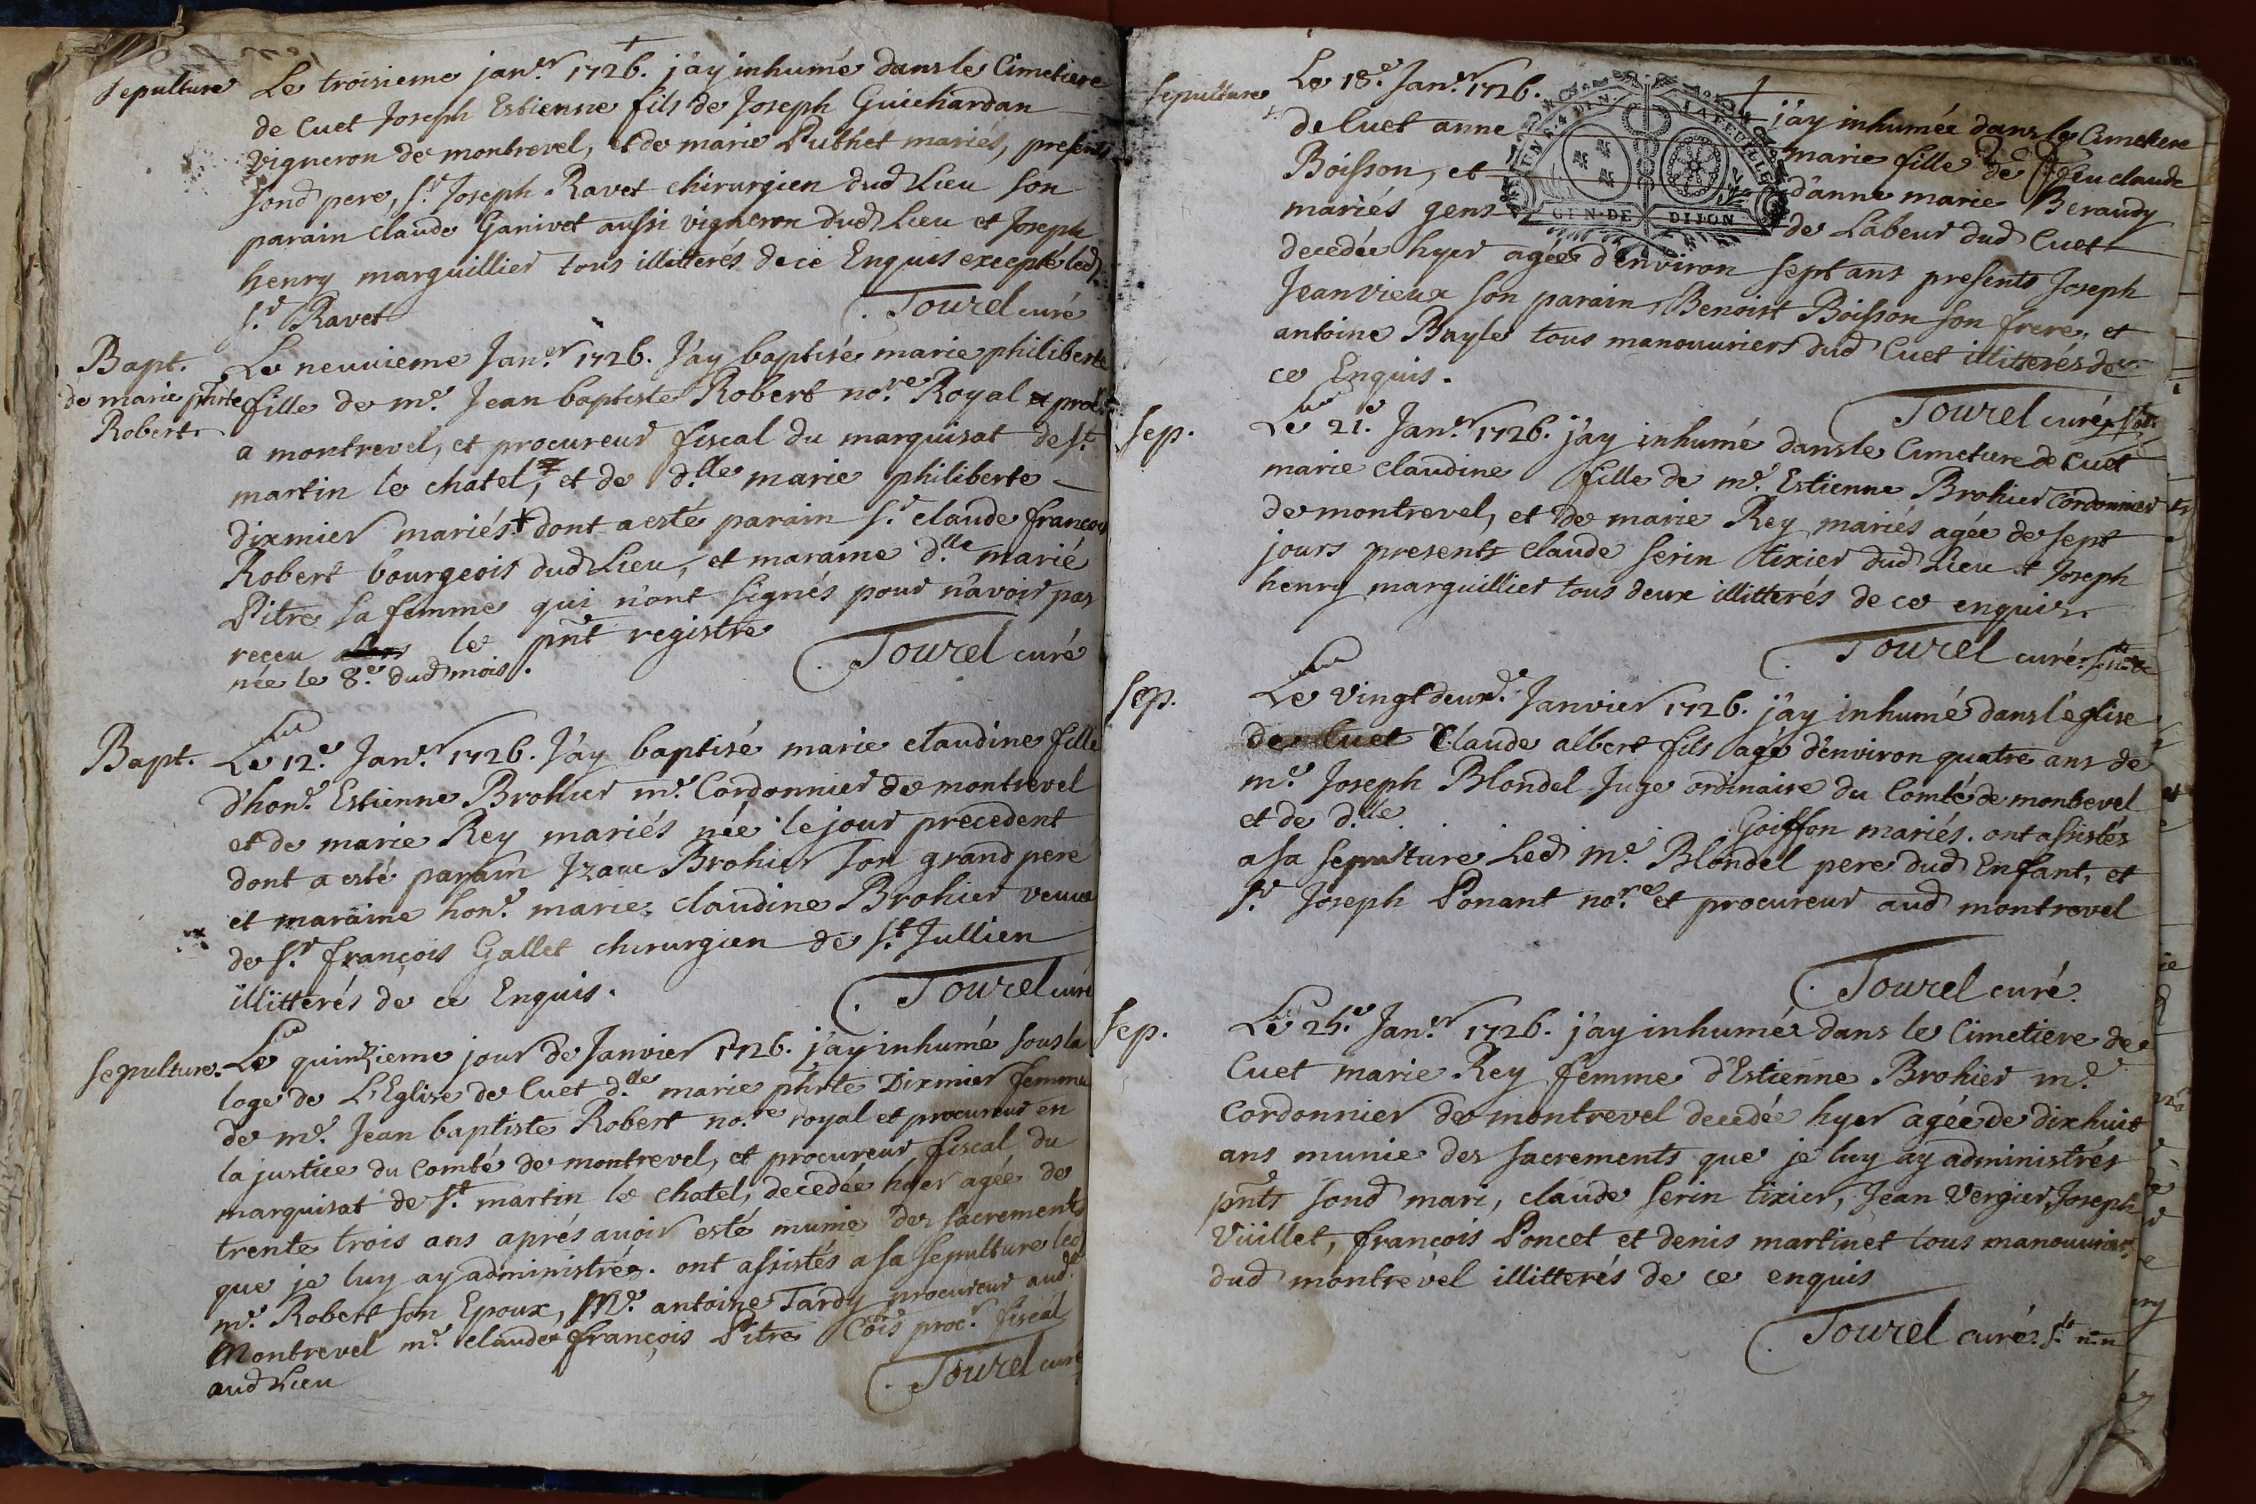 sepulture
Le troisieme jan.er 1726. j'ay inhumé dans le Cimetiere
de Cuet Joseph Estienne fils de Joseph Guichardan
vigneron de montrevel, et de marie Puthet mariés, presents
sond pere, s.r Joseph Ravet chirurgien dud Lieu son
parain claude Ganivet aussi vigneron dud Lieu et Joseph
henry marguillier tous illitterés de ce Enquis excepté led
s.r Ravet
Tourel curé
Bapt.
de marie phirte
Robert
Le neuvieme Jan.er 1726. J'ay baptisé marie philiberte
fille de m.e Jean baptiste Robert no.re Royal et proc.
a montrevel, et procureur fiscal du marquisat de S.t
martin le chatel, et de d.lle marie philiberte
Dixmier mariés + dont a esté parain s.r claude francois
Robert bourgeois dud Lieu, et maraine d.lle marie
Pitre sa femme qui n'ont signés pour n'avoir pas
reçeu le pnt registre
née le 8.e dud mois.
Tourel curé
Bapt.
Le 12.e Jan.er 1726. J'ay baptisé marie claudine fille
d'hon.e Estienne Brohier m.e Cordonnier de montrevel
et de marie Rey mariés née le jour precedent
dont a esté parain Izaac Brohier son grand pere
et maraine hon.e marie claudine Brohier veuve
de s.r françois Gallet chirurgien de S.t Jullien
illitterés de ce Enquis.
Tourel curé
sepulture.
Le quinzieme jour de Janvier 1726. j'ay inhumé sous la
loge de L'Eglise de Cuet d.lle marie phirte Dixmier femme
de m.e Jean baptiste Robert no.re royal et procureur en
la justice du Comté de montrevel, et procureur fiscal du
marquisat de S.t martin le chatel, decedée hyer agée de
trente trois ans aprés avoir esté munie des sacrements
que je luy ay administrés. ont assistés a sa sepulture led
m.e Robert son Epoux, M.e antoine Tardy procureur aud.
Montrevel m.e claude françois Pitre proc.r fiscal
aud Lieu
Tourel curé
sepulture
Le 18.e Jan.er 1726. j'ay inhumée dans le Cimetiere
de Cuet anne marie fille de feu claude
Boisson, et d'anne marie Beraudy
mariés gens de Labeur dud Cuet
GEN. DE DIJON
decedée hyer agée d'environ sept ans presents Joseph
Jeanvieux son parain, Benoist Boisson son frere, et
antoine Bayle tous manouuriers dud Cuet illitterés de
ce Enquis.
Tourel curé
sep.
Le 21.e Jan.er 1726. j'ay inhumé dans le Cimetiere de Cuet
marie claudine fille de m.e Estienne Brohier Cordonnier
de montrevel, et de marie Rey mariés agée de sept
jours presents claude serin tixier dud Lieu et Joseph
henry marguillier tous deux illitterés de ce enquis.
Tourel curé
sep.
Le vingt deux.e Janvier 1726. j'ay inhumé dans l'eglise
de Cuet Claude albert fils agé d'environ quatre ans de
m.e Joseph Blondel Juge ordinaire du Comté de montrevel
et de d.lle Goiffon mariés. ont assistés
a sa sepulture Led m.e Blondel pere dud Enfant, et
s.r Joseph Ponant no.re et procureur aud montrevel
Tourel curé.
sep.
Le 25.e Jan.er 1726. j'ay inhumée dans le Cimetiere de
Cuet marie Rey femme d'Estienne Brohier m.e
Cordonnier de montrevel decedée hyer agée de dix huit
ans munie des sacrements que je luy ay administrés
pnts sond mari, claude serin tixier, Jean Vergier, Joseph
Vüillet, françois Poncet et denis martinet tous manouuriers
dud montrevel illitterés de ce enquis
Tourel curé